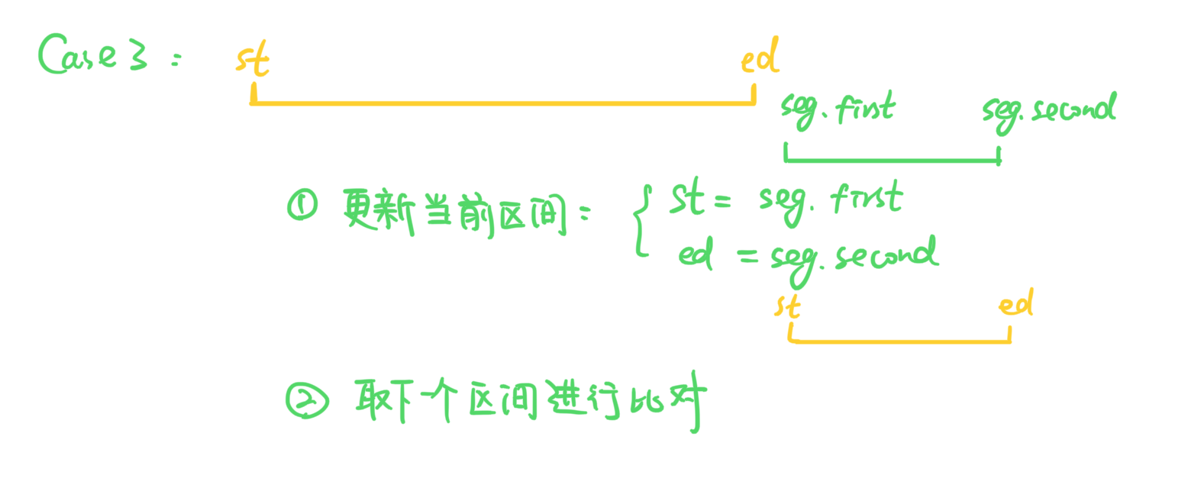 Case 3 : st ed
seg.first seg.second
① 更新当前区间 : { st = seg.first
ed = seg.second
st ed
② 取下个区间进行比对